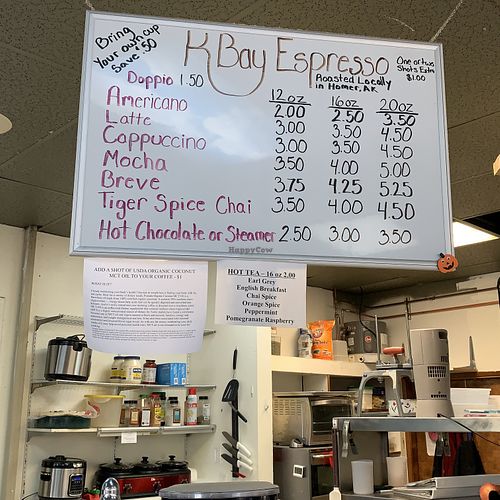 Bring
Your own cup
Save .50
K Bay Espresso
Roasted Locally
in Homer, AK
One or two
Shots Extra
$1.00
Doppio 1.50
12oz 16oz 20oz
Americano 2.00 2.50 3.50
Latte 3.00 3.50 4.50
Cappuccino 3.00 3.50 4.50
Mocha 3.50 4.00 5.00
Breve 3.75 4.25 5.25
Tiger Spice Chai 3.50 4.00 4.50
Hot Chocolate or Steamer 2.50 3.00 3.50
HappyCow
ADD A SHOT OF USDA ORGANIC COCONUT
MCT OIL TO YOUR COFFEE - $1
HOT TEA – 16 oz 2.00
Earl Grey
English Breakfast
Chai Spice
Orange Spice
Peppermint
Pomegranate Raspberry